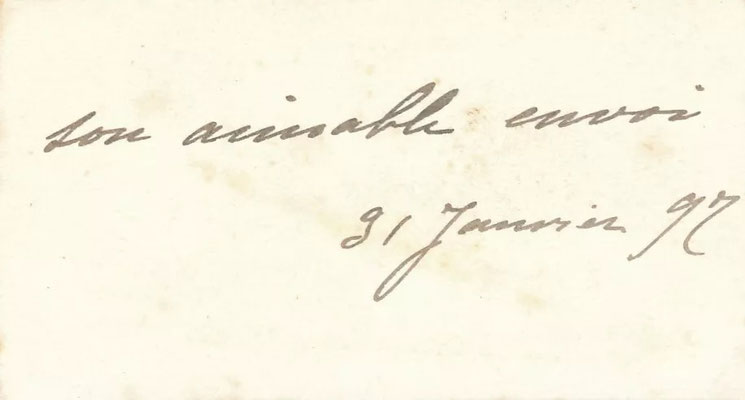 son aimable envoi
31 Janvier 97